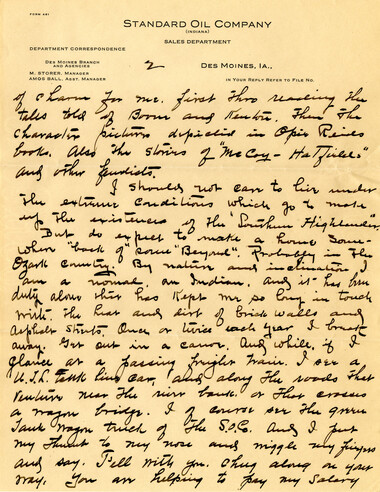 FORM 481
STANDARD OIL COMPANY
(INDIANA)
SALES DEPARTMENT
DEPARTMENT CORRESPONDENCE
DES MOINES BRANCH
AND AGENCIES
M. STORER, MANAGER
AMOS BALL, ASST. MANAGER
2
DES MOINES, IA.,
IN YOUR REPLY REFER TO FILE NO.
of charm for me. first thro reading the
tales told of Boone and Kenton. Then the
character pictures depicted in Opie Reids
books. Also the stories of "McCoy - Hatfields"
and other feudists.
I should not care to live under
the extreme conditions which go to make
up the existences of the "Southern Highlander"
But do expect to make a home Some-
where "back of" some "Beyond". Probably in the
Ozark Country. By nature and inclination I
am a nomad, an Indian. and it has been
duty alone that has Kept me so long in touch
with the heat and dirt of brick walls and
asphalt streets. Once or twice each year I break
away. Get out in a canoe. And while, if I
glance at a passing freight train. I see a
U.T.L. tank line car, and along the roads that
venture near the river bank. or that crosses
a wagon bridge. I of course see the green
tank wagon truck of the S.O.Co. And I put
my thumb to my nose and wiggle my fingers
and say. T'ell with you. Chug along on your
way. You are helping to pay my Salary